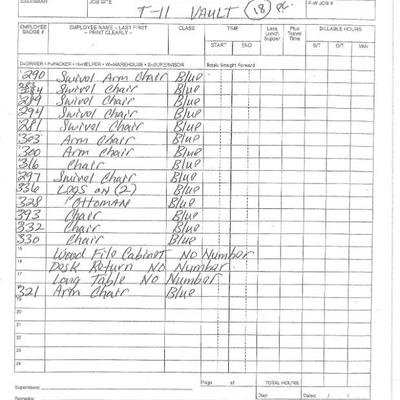 SALESMAN JOB SITE P-W JOB #
T-11 VAULT 18 pc.
EMPLOYEE BADGE # EMPLOYEE NAME - LAST FIRST - PRINT CLEARLY - CLASS TIME START END Less Lunch Supper Plus Travel Time BILLABLE HOURS S/T O/T VAN
D=DRIVER P=PACKER H=HELPER W=WAREHOUSE S=SUPERVISOR Totals Brought Forward
290 Swivel Arm Chair Blue
284 Swivel Chair Blue
289 Swivel Chair Blue
294 Swivel Chair Blue
281 Swivel Chair Blue
303 Arm Chair Blue
300 Arm Chair Blue
316 Chair Blue
297 Swivel Chair Blue
336 Legs on (2) Blue
328 Ottoman Blue
393 Chair Blue
332 Chair Blue
330 Chair Blue
15 Wood File Cabinet No Number
16 Desk Return No Number
17 Long Table No Number
321 Arm Chair Blue
19
20
21
22
23
24
Supervisor: Page of TOTAL HOURS
Date: Dates: / /